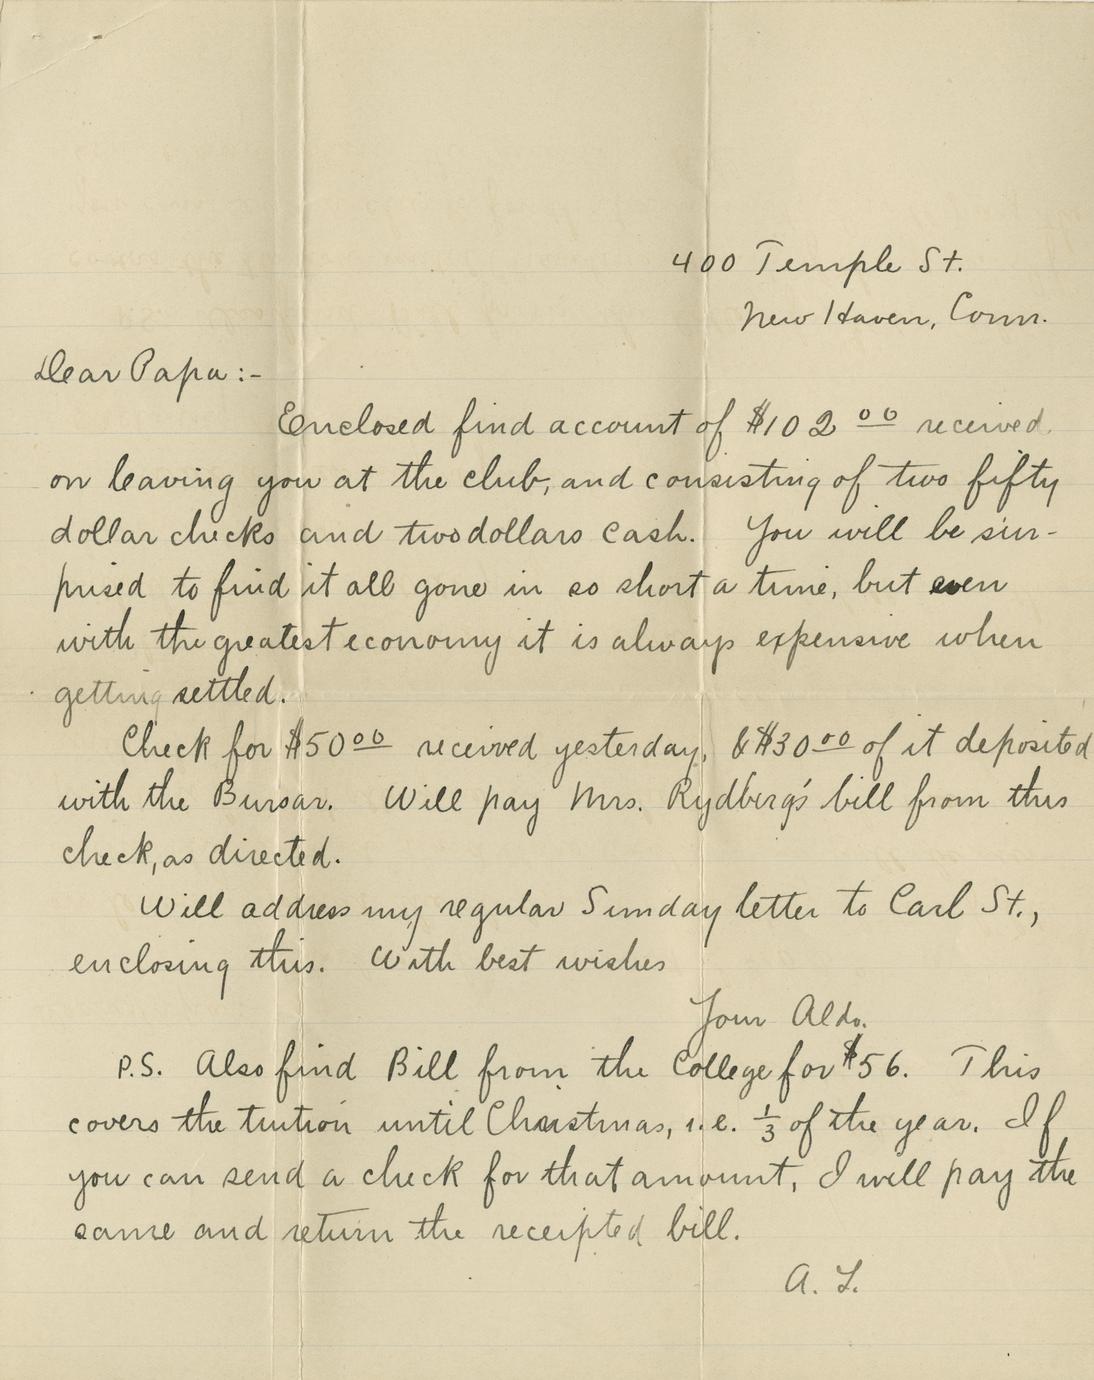 400 Temple St.
New Haven, Conn.
Dear Papa:-
Enclosed find account of $102 00 received
on leaving you at the club, and consisting of two fifty
dollar checks and two dollars cash. You will be sur-
prised to find it all gone in so short a time, but even
with the greatest economy it is always expensive when
getting settled.
Check for $50 00 received yesterday, & $30 00 of it deposited
with the Bursar. Will pay Mrs. Rydberg's bill from this
check, as directed.
Will address my regular Sunday letter to Carl St.,
enclosing this. With best wishes
Your Aldo.
P.S. Also find Bill from the College for $56. This
covers the tuition until Christmas, i.e. 1/3 of the year. If
you can send a check for that amount, I will pay the
same and return the receipted bill.
A. L.